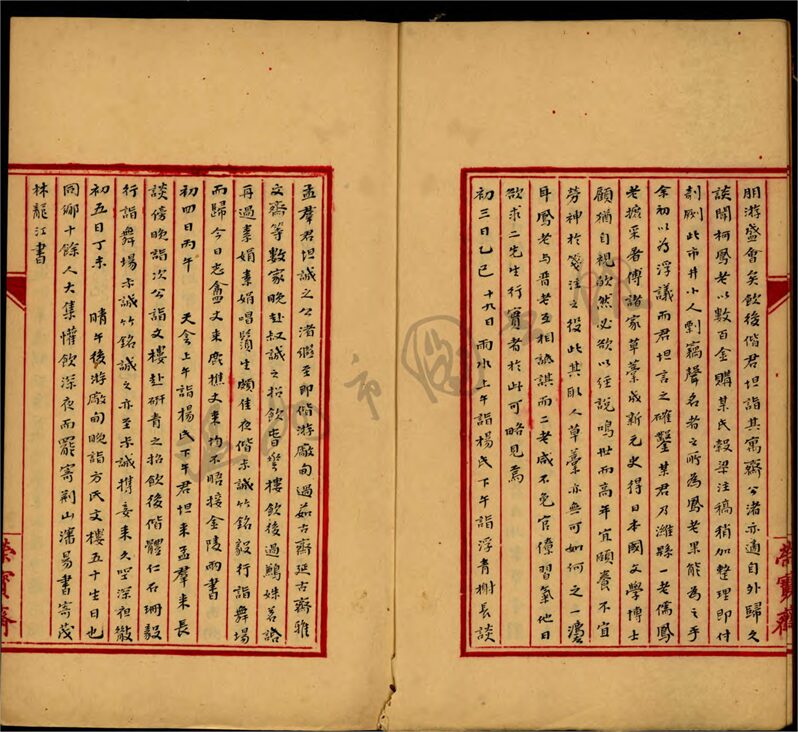 朋游盛會矣飲後偕君坦詣其寓齋公渚亦適自外歸久
談聞柯鳳老以數百金購某氏穀梁注稿稍加整理即付
剞劂此市井小人剽竊聲名者之所為鳳老果能為之乎
余初以為浮議而君坦言之確鑿某君乃濰縣一老儒鳳
老摭采者傳諸家草藁成新元史得日本國文學博士
顧猶自視欿然必欲以經說鳴世而高年宜頤養不宜
勞神於箋注之役此其取人草藁亦無可如何之一濅
耳鳳老與晋老互相諗諆而二老咸不免官僚習氣他日
欲求二先生行實者於此可略見焉
初三日乙巳 十九日 雨水上午詣楊氏下午詣浮青榭長談
孟羣君坦誠之公渚僊至即偕游廠甸過茹古齋延古齋雅
文齋等數家晚赴叔誠之招飲 樓飲後過鷫姝茗話
再過素娟素娟唱鬚生頗佳夜偕未誠竹銘毅行詣舞場
而歸今日志盦丈來鹿樵丈來均不晤接金陵兩書
初四日丙午 天会上午詣楊氏下午君坦來孟羣來長
談傍晚詣次公詣文樓赴硏青之招飲後偕體仁石珊毅
行詣舞場未誠竹銘誠之亦至未誠攜妾來久坐深夜散
初五日丁未 晴午後游廠甸晚詣方氏文樓五十生日也
同鄉十餘人大集懽飲深夜而罷寄荆山瀋易書寄茂
林龍江書
榮寶齋
榮寶齋